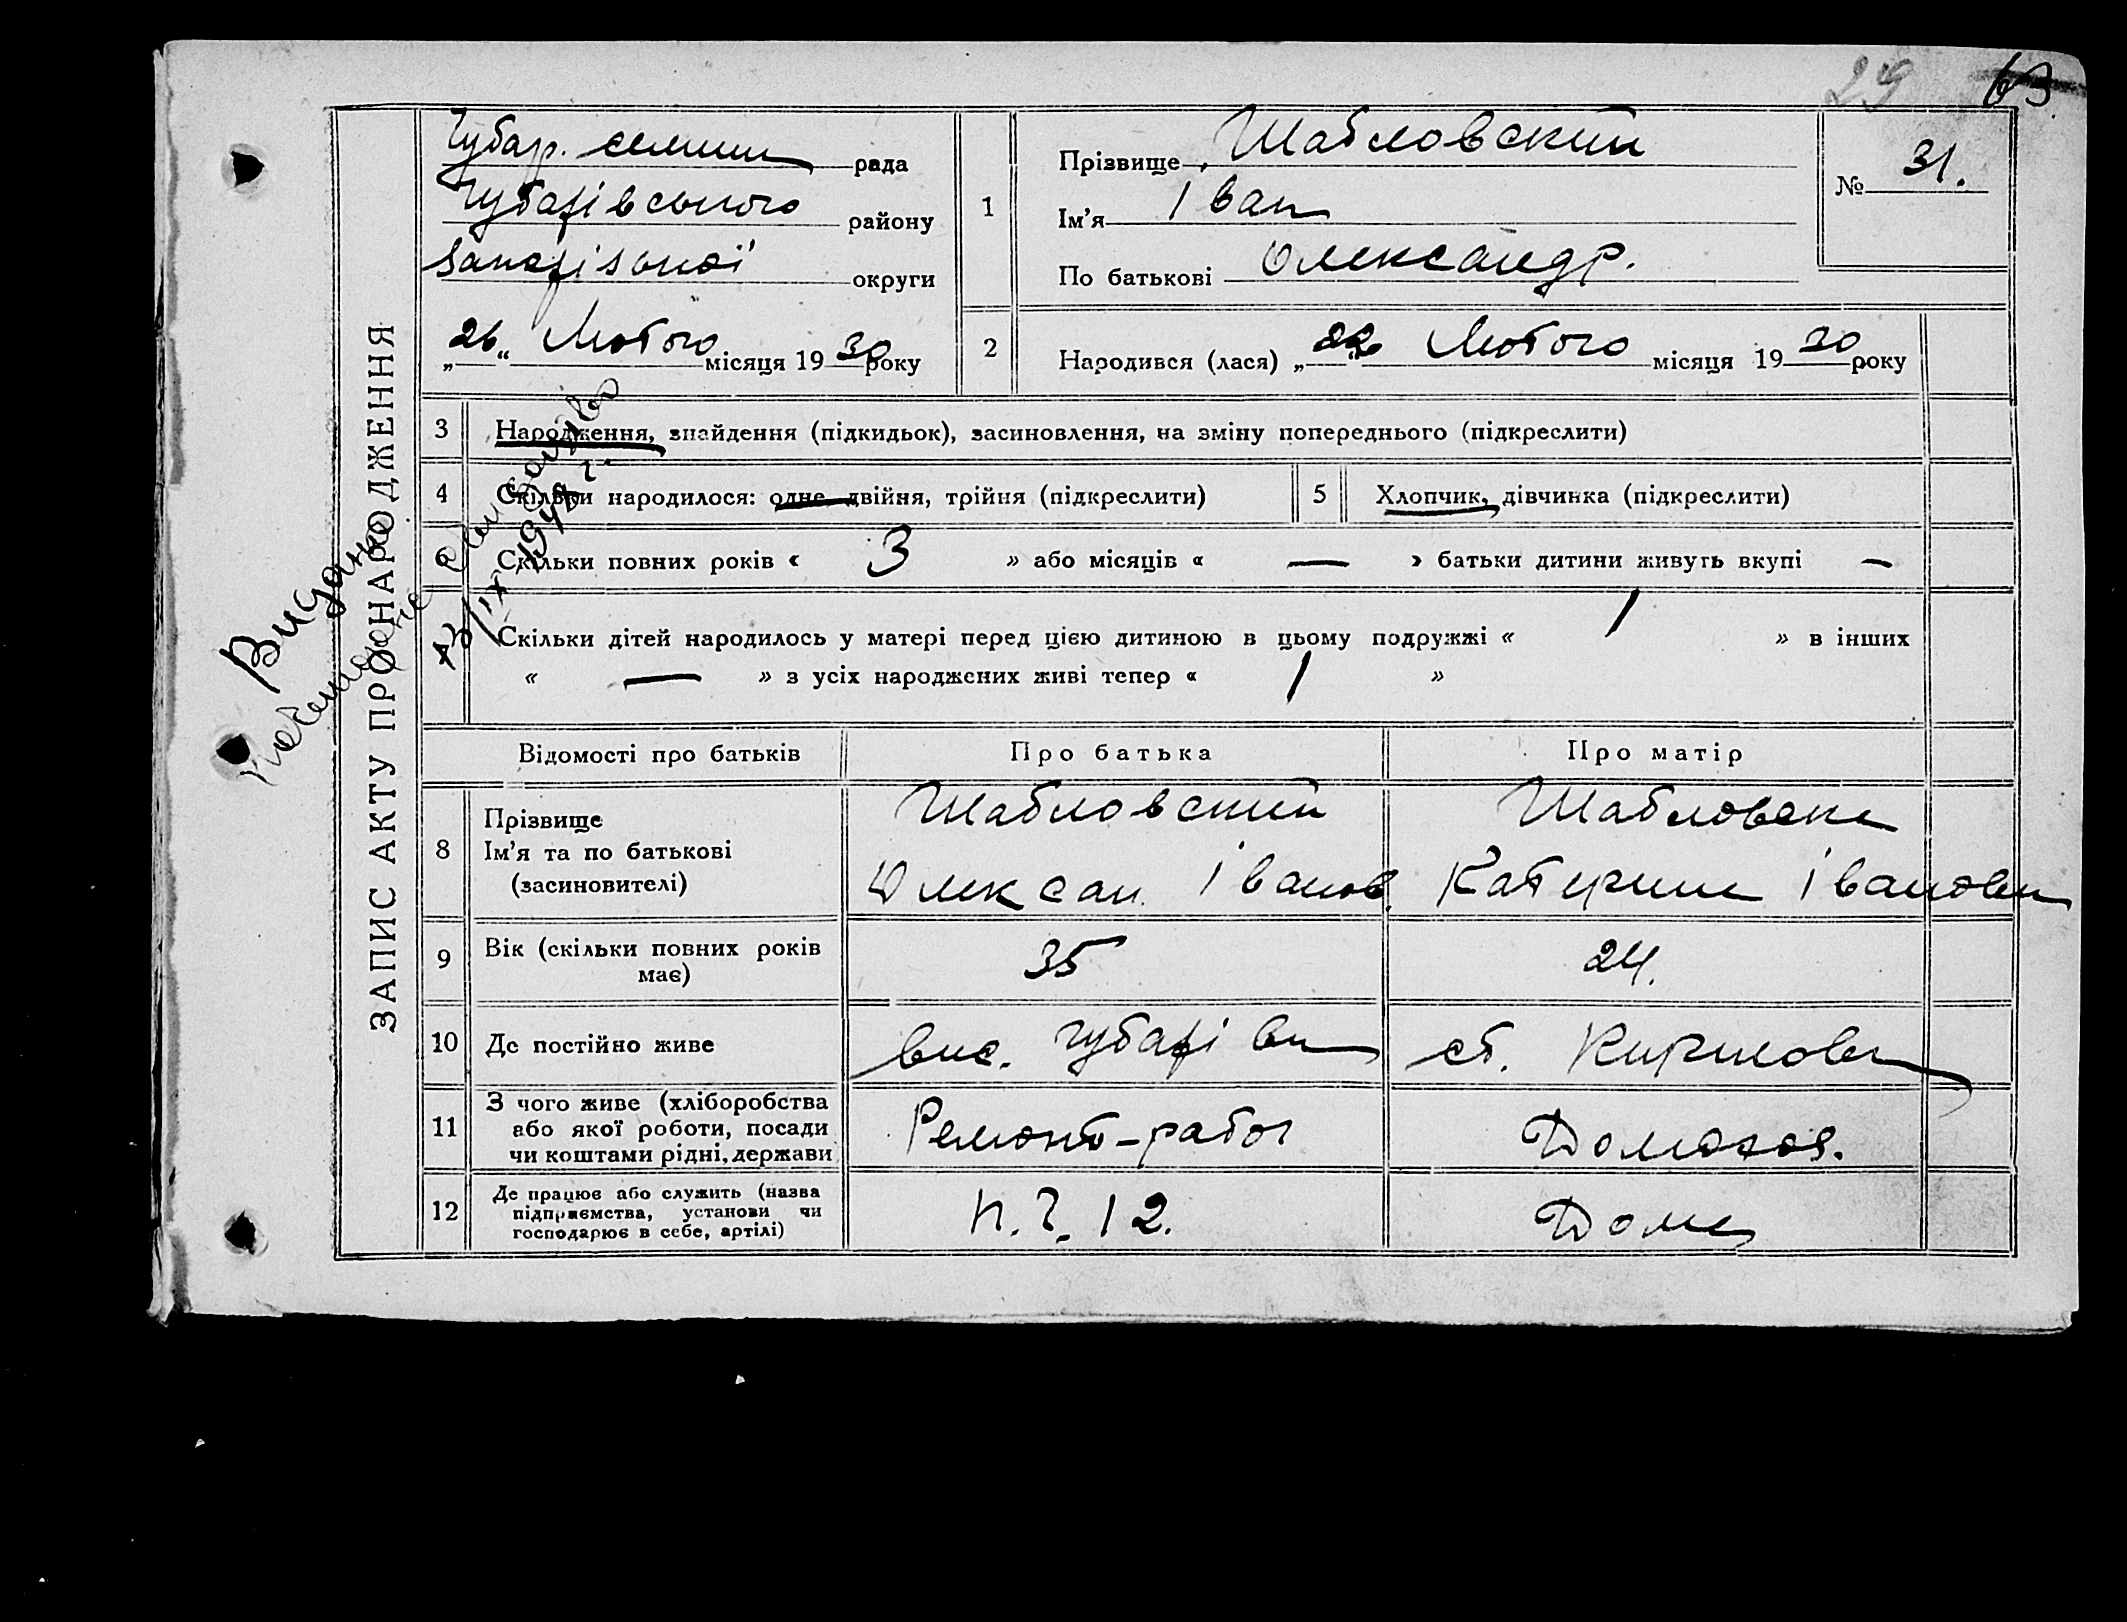 29 63
ЗАПИС АКТУ ПРО НАРОДЖЕННЯ
Губар. селищн рада
Губарівського району
округи
„26“ Лютого місяця 1930 року
1
Прізвище Шабловский
Ім’я Іван
По батькові Олександр.
№ 31.
2
Народився (лася) „ “ Лютого місяця 1930 року
3 Народження, знайдення (підкидьок), засиновлення, на зміну попереднього (підкреслити)
4 Скільки народилося: одне, двійня, трійня (підкреслити) 5 Хлопчик, дівчинка (підкреслити)
6 Скільки повних років « 3 » або місяців « — » батьки дитини живуть вкупі —
Скільки дітей народилось у матері перед цією дитиною в цьому подружжі « 1 » в інших
« — » з усіх народжених живі тепер « 1 »
Видано
1948 г.
Відомості про батьків Про батька Про матір
8 Прізвище Шабловский Шабловска
Ім’я та по батькові Олексан. Іванов. Катерина Івановн
(засиновителі)
9 Вік (скільки повних років має) 35 24.
10 Де постійно живе вис. Губарівка ст. Кириловка
11 З чого живе (хліборобства Ремонт-рабоч Домохоз.
або якої роботи, посади
чи коштами рідні, держави
12 Де працює або служить (назва П.Ч. 12. Дома
підприємства, установи чи
господарює в себе, артілі)